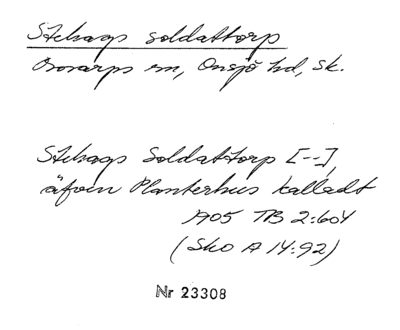 Stehags soldattorp
Bosarps sn, Onsjö hd, Sk.
Stehags Soldattorp [--],
äfven Planterhus kalladt
1905 TB 2:604
(Sko A 14:92)
Nr 23308